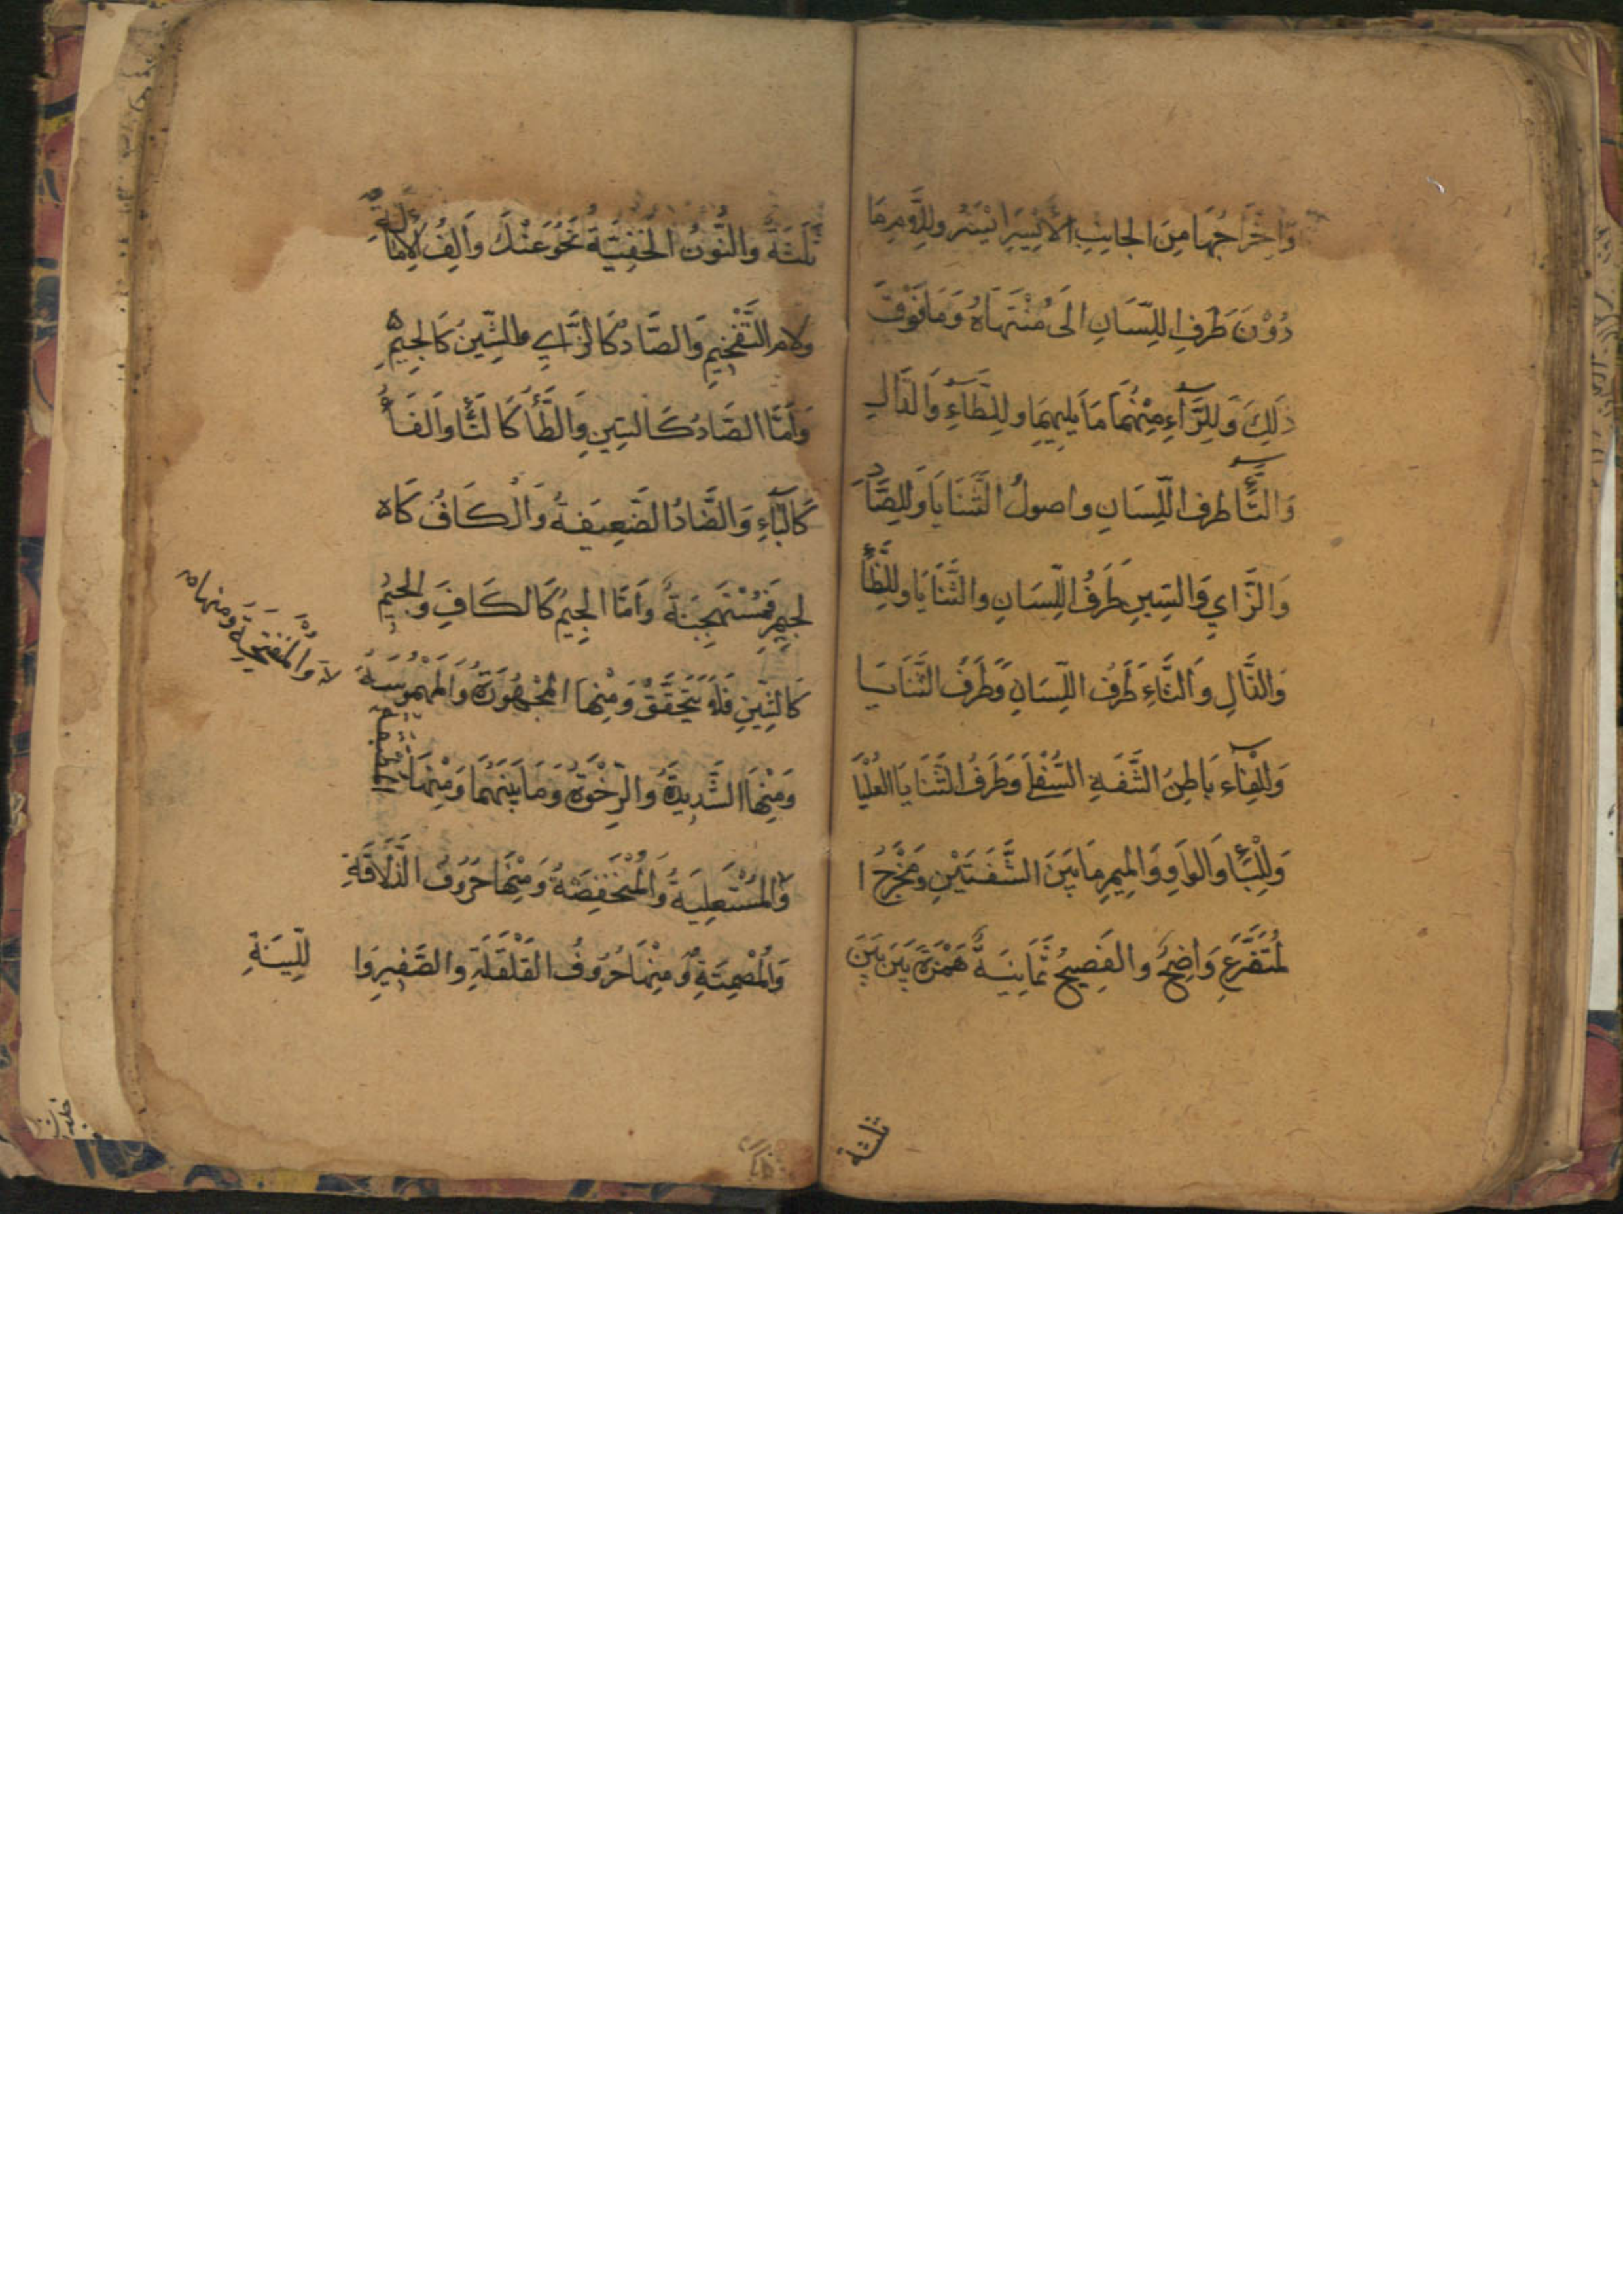 وَاِخْرَاجُهَا مِنَ الجَانِبِ الأَيْسَرِ اَيْسَرُ وللام مَا
دُوْنَ طَرَفِ اللِّسَانِ اِلَى مُنْتَهَاهُ وَمَا فَوْقَ
ذٰلِكَ وَلِلرَّاءِ مِنْهُمَا مَا يَلِيهِمَا وللطَّاءِ وَالدَّالِ
وَالتَّاءِ طرف اللِّسَانِ واصولُ الثَّنَايَا وَلِلصَّادِ
وَالزَّايِ وَالسِّينِ طَرَفُ اللِّسَانِ والثَّنَايَا وللِظَّاءِ
وَالذَّالِ وَالثَّاءِ طَرَفُ اللِّسَانِ وَطَرَفُ الثَّنَايَا
وَلِلْفَاءِ بَاطِنُ الشَّفَةِ السُّفْلَى وَطَرَفُ الثَّنَايَا العُلْيَا
وَلِلْبَاءِ وَالوَاوِ وَالمِيمِ مَا بَيْنَ الشَّفَتَيْنِ وَمَخْرَجُ ا
لمُتَفَرَّعِ وَاضِحٌ والفَصِيحُ ثَمَانِيَةٌ هَمْزَةُ بَيْنَ بَيْنَ
ثلثة
ثَلٰثَةٌ والنُّونُ الخَفِيَّةُ نَحْوُ عَنْكَ وَاَلِفُ الاِمَالَةِ
ولامُ التَّفْخِيمِ وَالصَّادُ كَالزَّايِ والشِّينُ كَالجِيمِ
وَاَمَّا الصَّادُ كَالسِّينِ وَالطَّاءُ كَالتَّاءِ وَالفَاءُ
كَالبَاءِ وَالضَّادُ الضَّعِيفَةُ وَالْكَافُ كَا
لجِيمِ فَمُسْتَهْجَنَةٌ وَاَمَّا الجِيمُ كَالكَافِ وَالجِيمُ
كَالشِّينِ فَلَا يَتَحَقَّقُ وَمِنْهَا المَجْهُورَةُ وَالمَهْمُوسَةُ
وَمِنْهَا الشَّدِيدَةُ وَالرِّخْوَةُ وَمَا بَيْنَهُمَا وَمِنْهَا المطبقة
والمُنْفَتِحَةُ ومنها
وَالمُسْتَعْلِيَةُ وَالْمُنْخَفِضَةُ وَمِنْهَا حُرُوفُ الذَّلَاقَةِ
وَالْمُصْمَتَةِ وَمِنْهَا حُرُوفُ القَلْقَلَةِ والصَّفِيرِ وَا
للَّيِّنَةِ